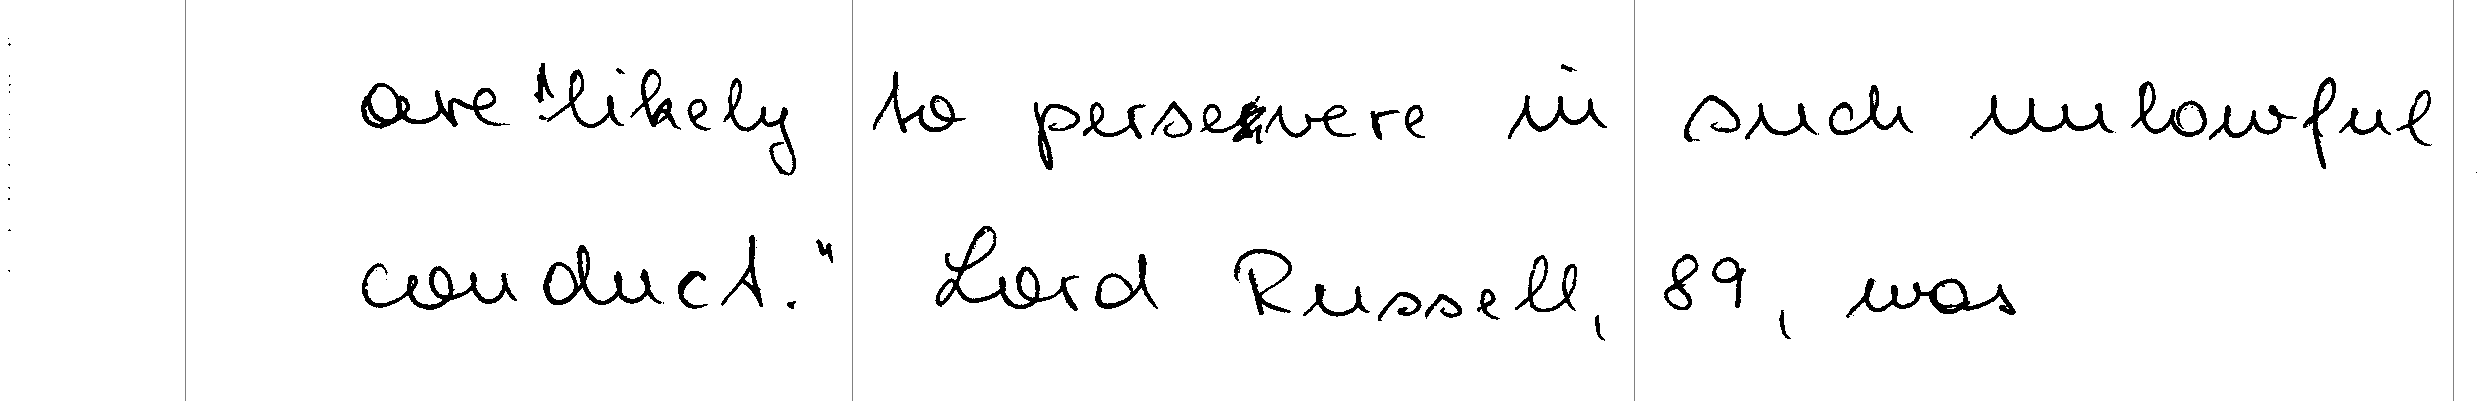 are "likely to persevere in such unlawful
conduct." Lord Russell, 89, was